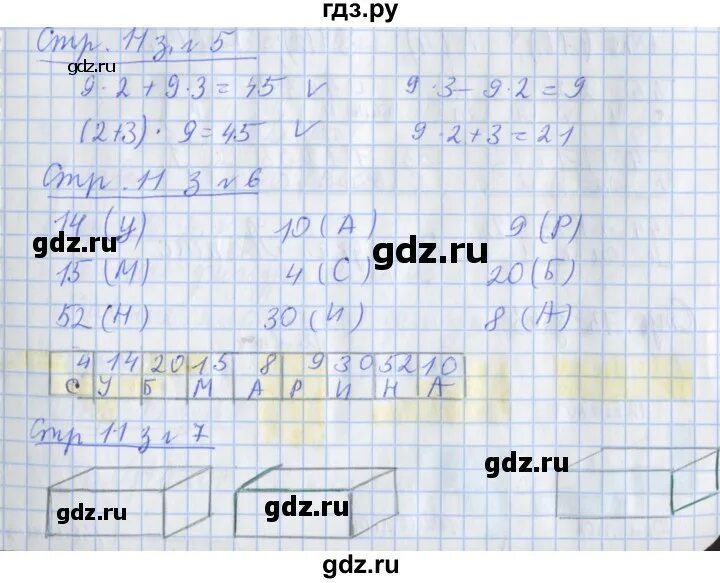 гдз.ру
Стр. 11 з. № 5
gdz.ru gdz.ru
9·2+9·3=45 ✓ 9·3-9·2=9
(2+3)·9=45 ✓ 9·2+3=21
Стр. 11 з № 6
14 (У) 10 (А) 9 (Р)
gdz.ru gdz.ru
15 (М) 4 (С) 20 (Б)
52 (Н) 30 (И) 8 (А)
gdz.ru
4 14 20 15 8 9 30 52 10
С У Б М А Р И Н А
Стр 11 з № 7
gdz.ru
gdz.ru gdz.ru
gdz.ru